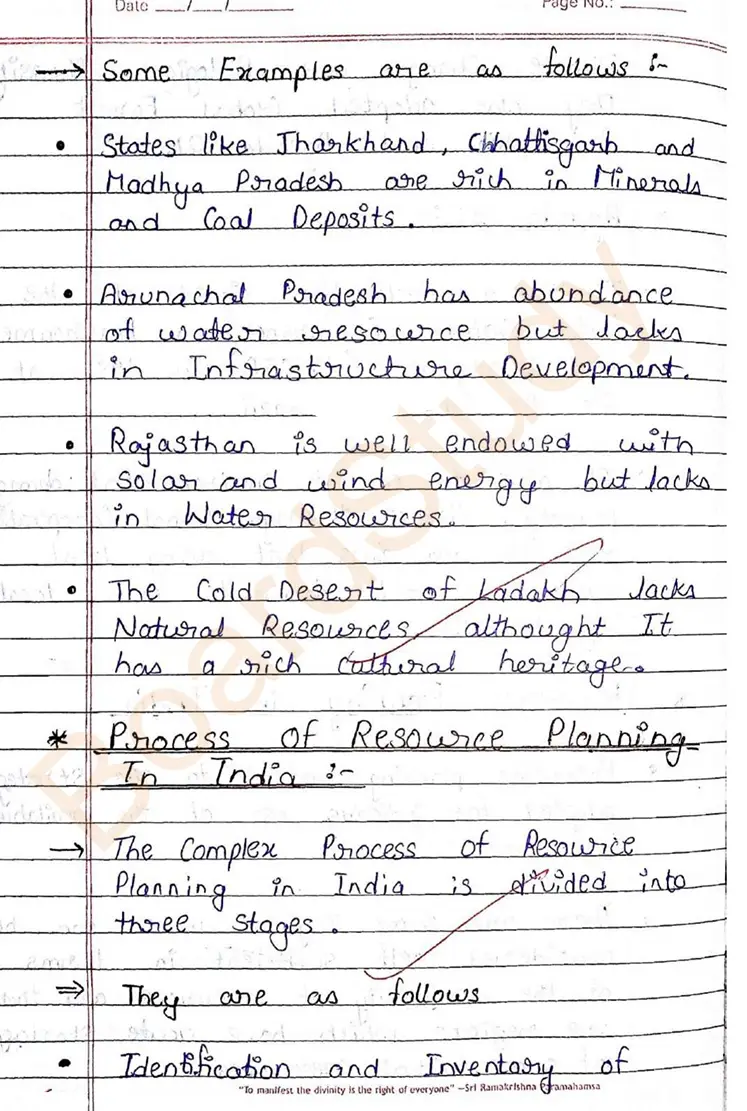 Date ___/___/______ Page No.: ______
→ Some Examples are as follows :-
• States like Jharkhand, Chhattisgarh and
Madhya Pradesh are rich in Minerals
and Coal Deposits.
• Arunachal Pradesh has abundance
of water resource but lacks
in Infrastructure Development.
• Rajasthan is well endowed with
solar and wind energy but lacks
in Water Resources.
• The Cold Desert of Ladakh lacks
Natural Resources, althought It
has a rich cultural heritage.
* Process of Resource Planning
In India :-
→ The Complex Process of Resource
Planning in India is divided into
three stages.
⇒ They are as follows
• Identification and Inventory of
"To manifest the divinity is the right of everyone" –Sri Ramakrishna Paramahamsa
BoardStudy